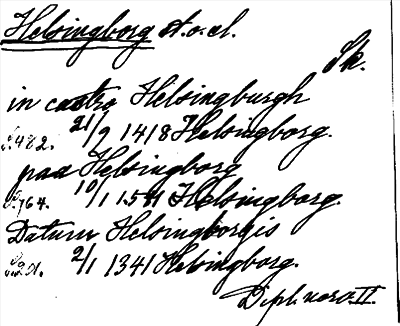 Helsingborg st. o. sl.
Sk.
in castro Helsingburgh
S. 482. 21/9 1418 Helsingborg.
paa Helsingborg
S. 764. 10/1 1541 Helsingborg.
Datum Helsingborgis
S. 201. 2/1 1341 Helsingborg.
Dipl. II.